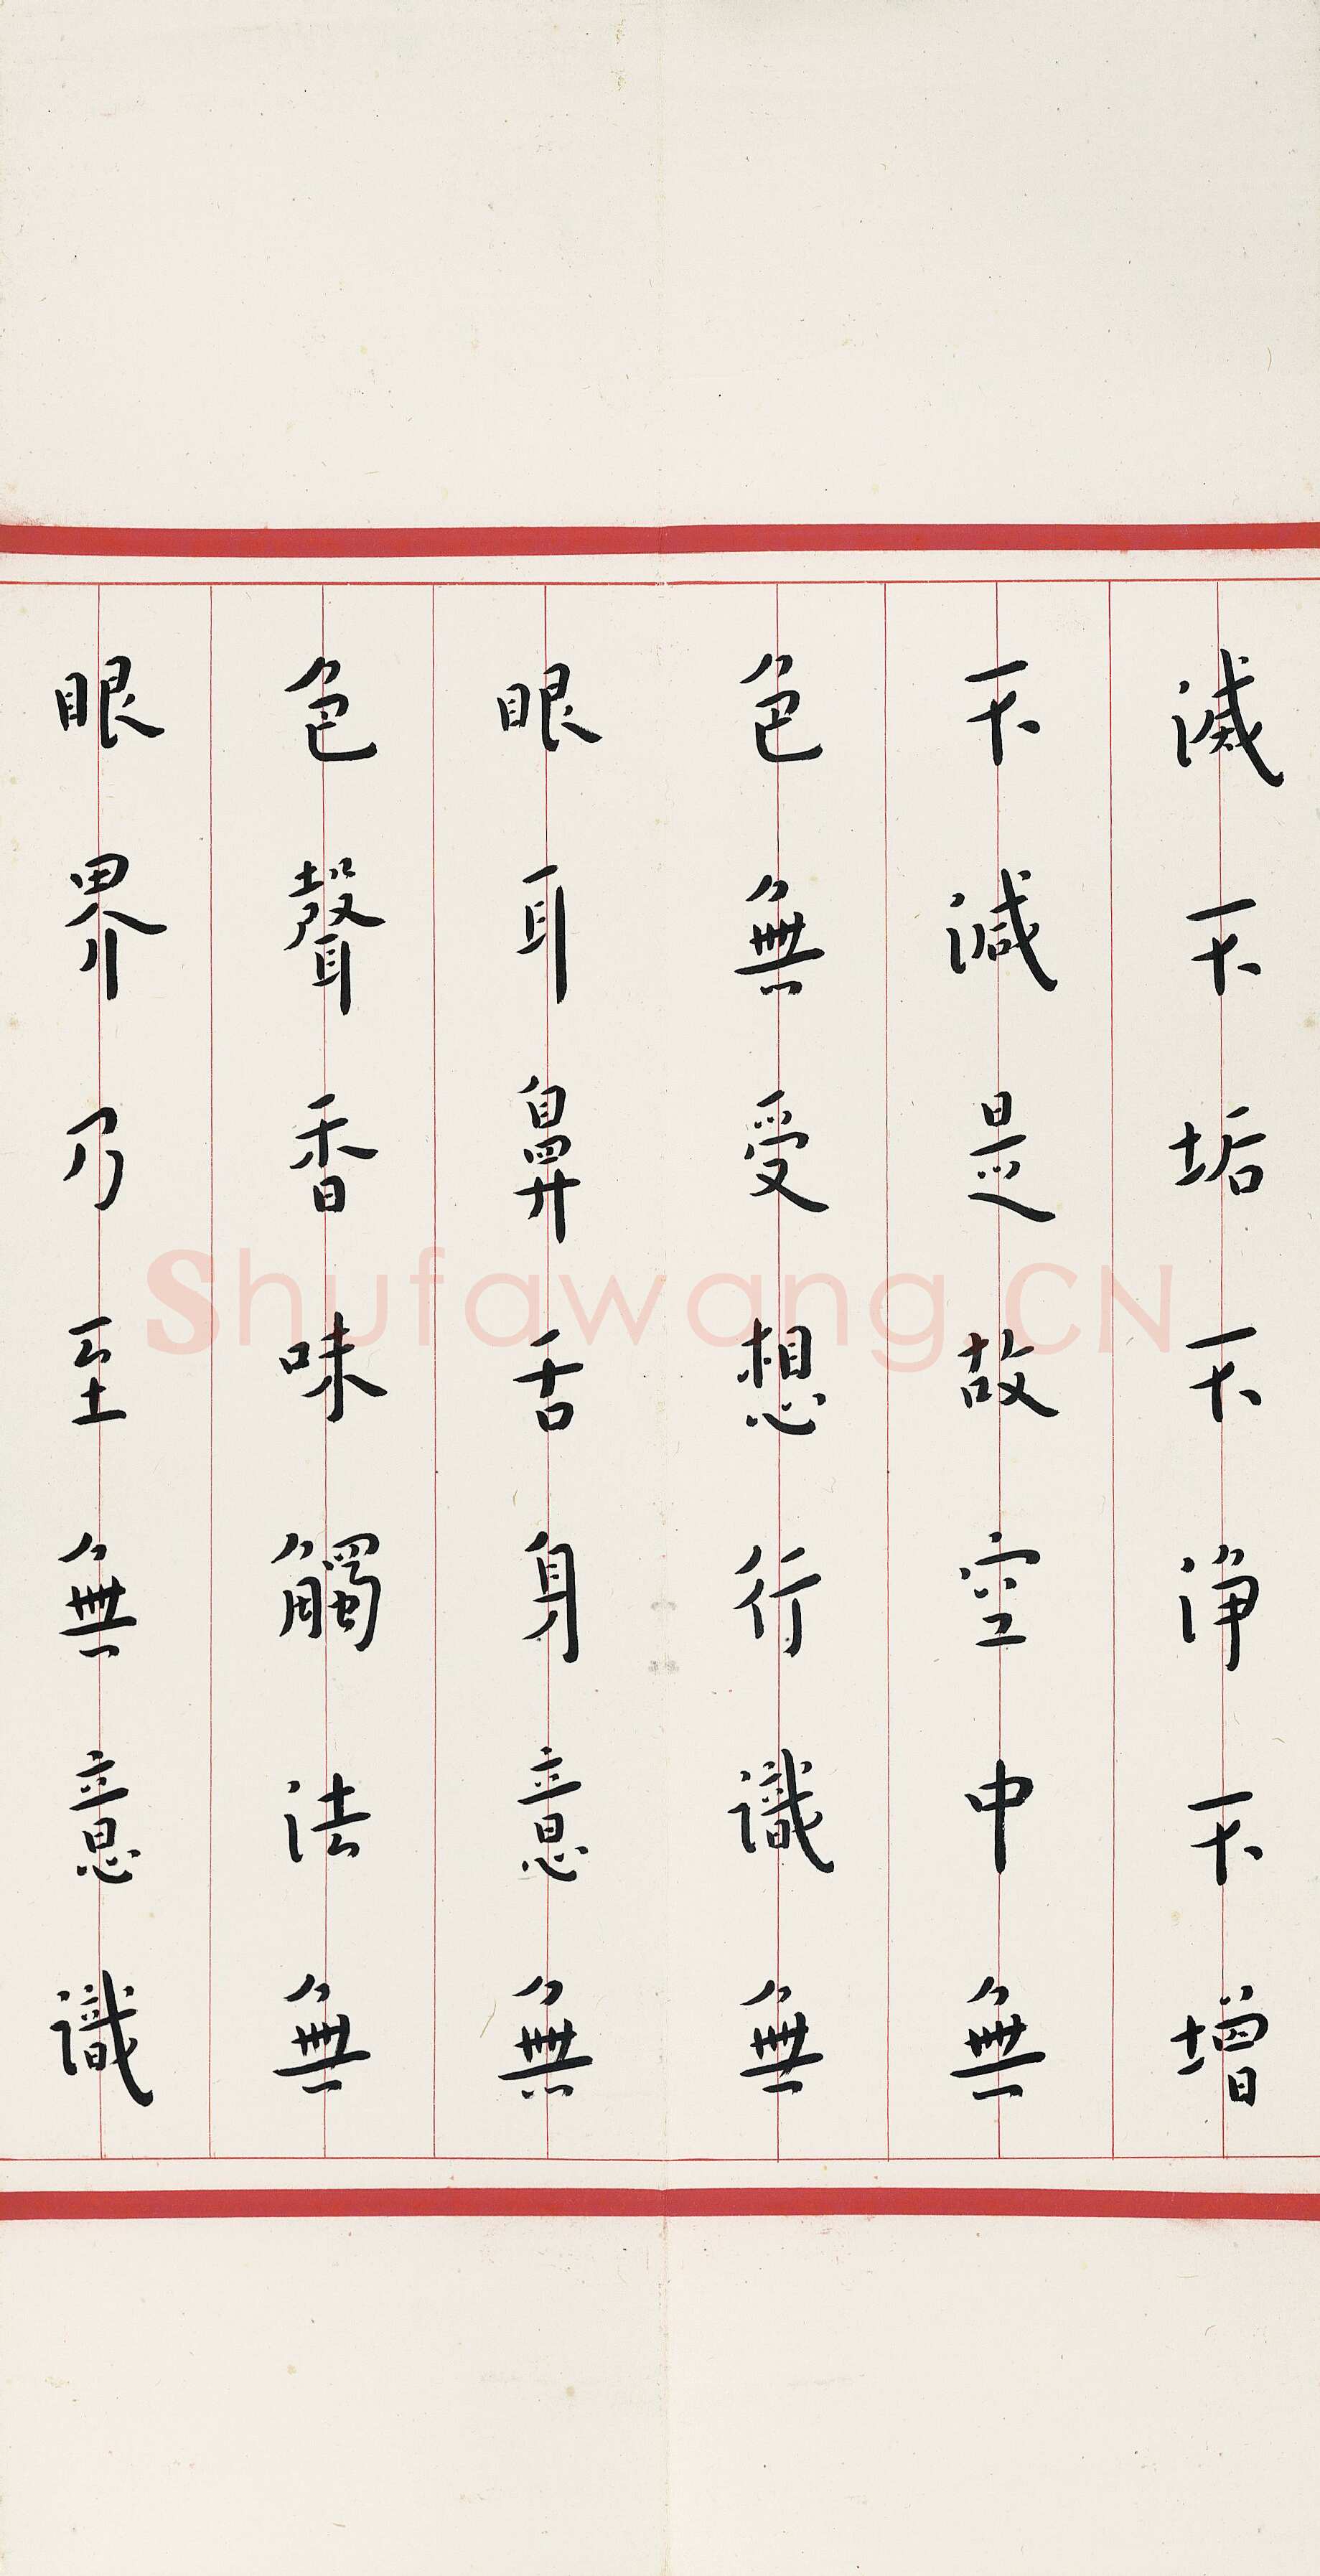 滅不垢不淨不增
不減是故空中無
色無受想行識無
眼耳鼻舌身意無
色聲香味觸法無
眼界乃至無意識
Shufawang.CN